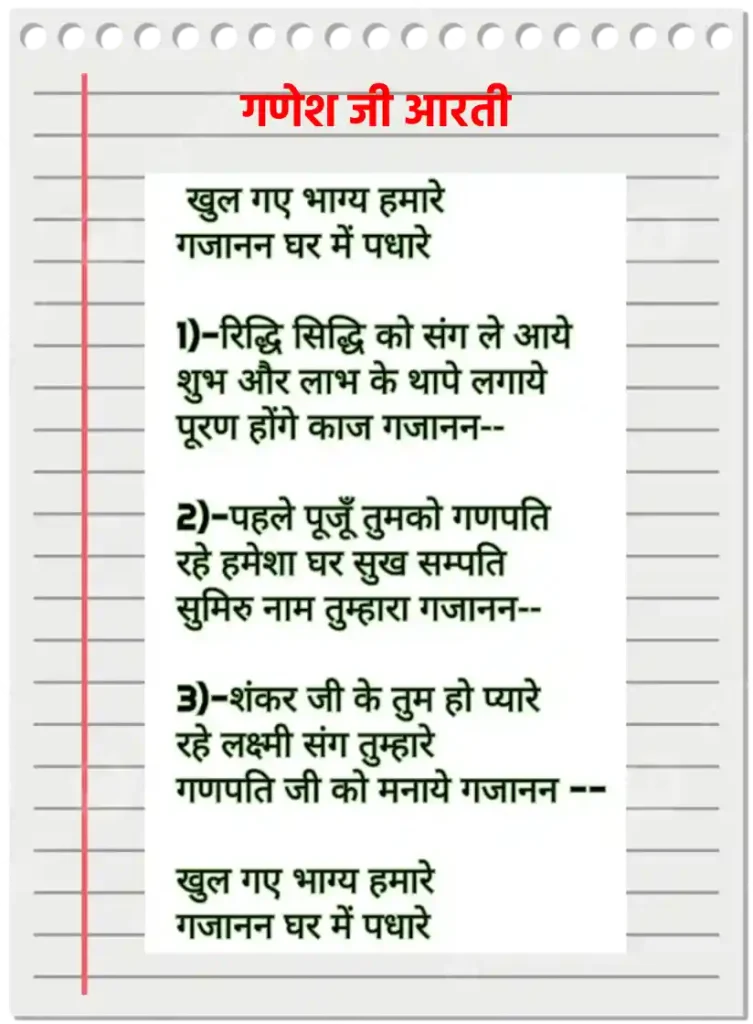 गणेश जी आरती
खुल गए भाग्य हमारे
गजानन घर में पधारे
1)-रिद्धि सिद्धि को संग ले आये
शुभ और लाभ के थापे लगाये
पूरण होंगे काज गजानन--
2)-पहले पूजूँ तुमको गणपति
रहे हमेशा घर सुख सम्पति
सुमिरु नाम तुम्हारा गजानन--
3)-शंकर जी के तुम हो प्यारे
रहे लक्ष्मी संग तुम्हारे
गणपति जी को मनाये गजानन --
खुल गए भाग्य हमारे
गजानन घर में पधारे